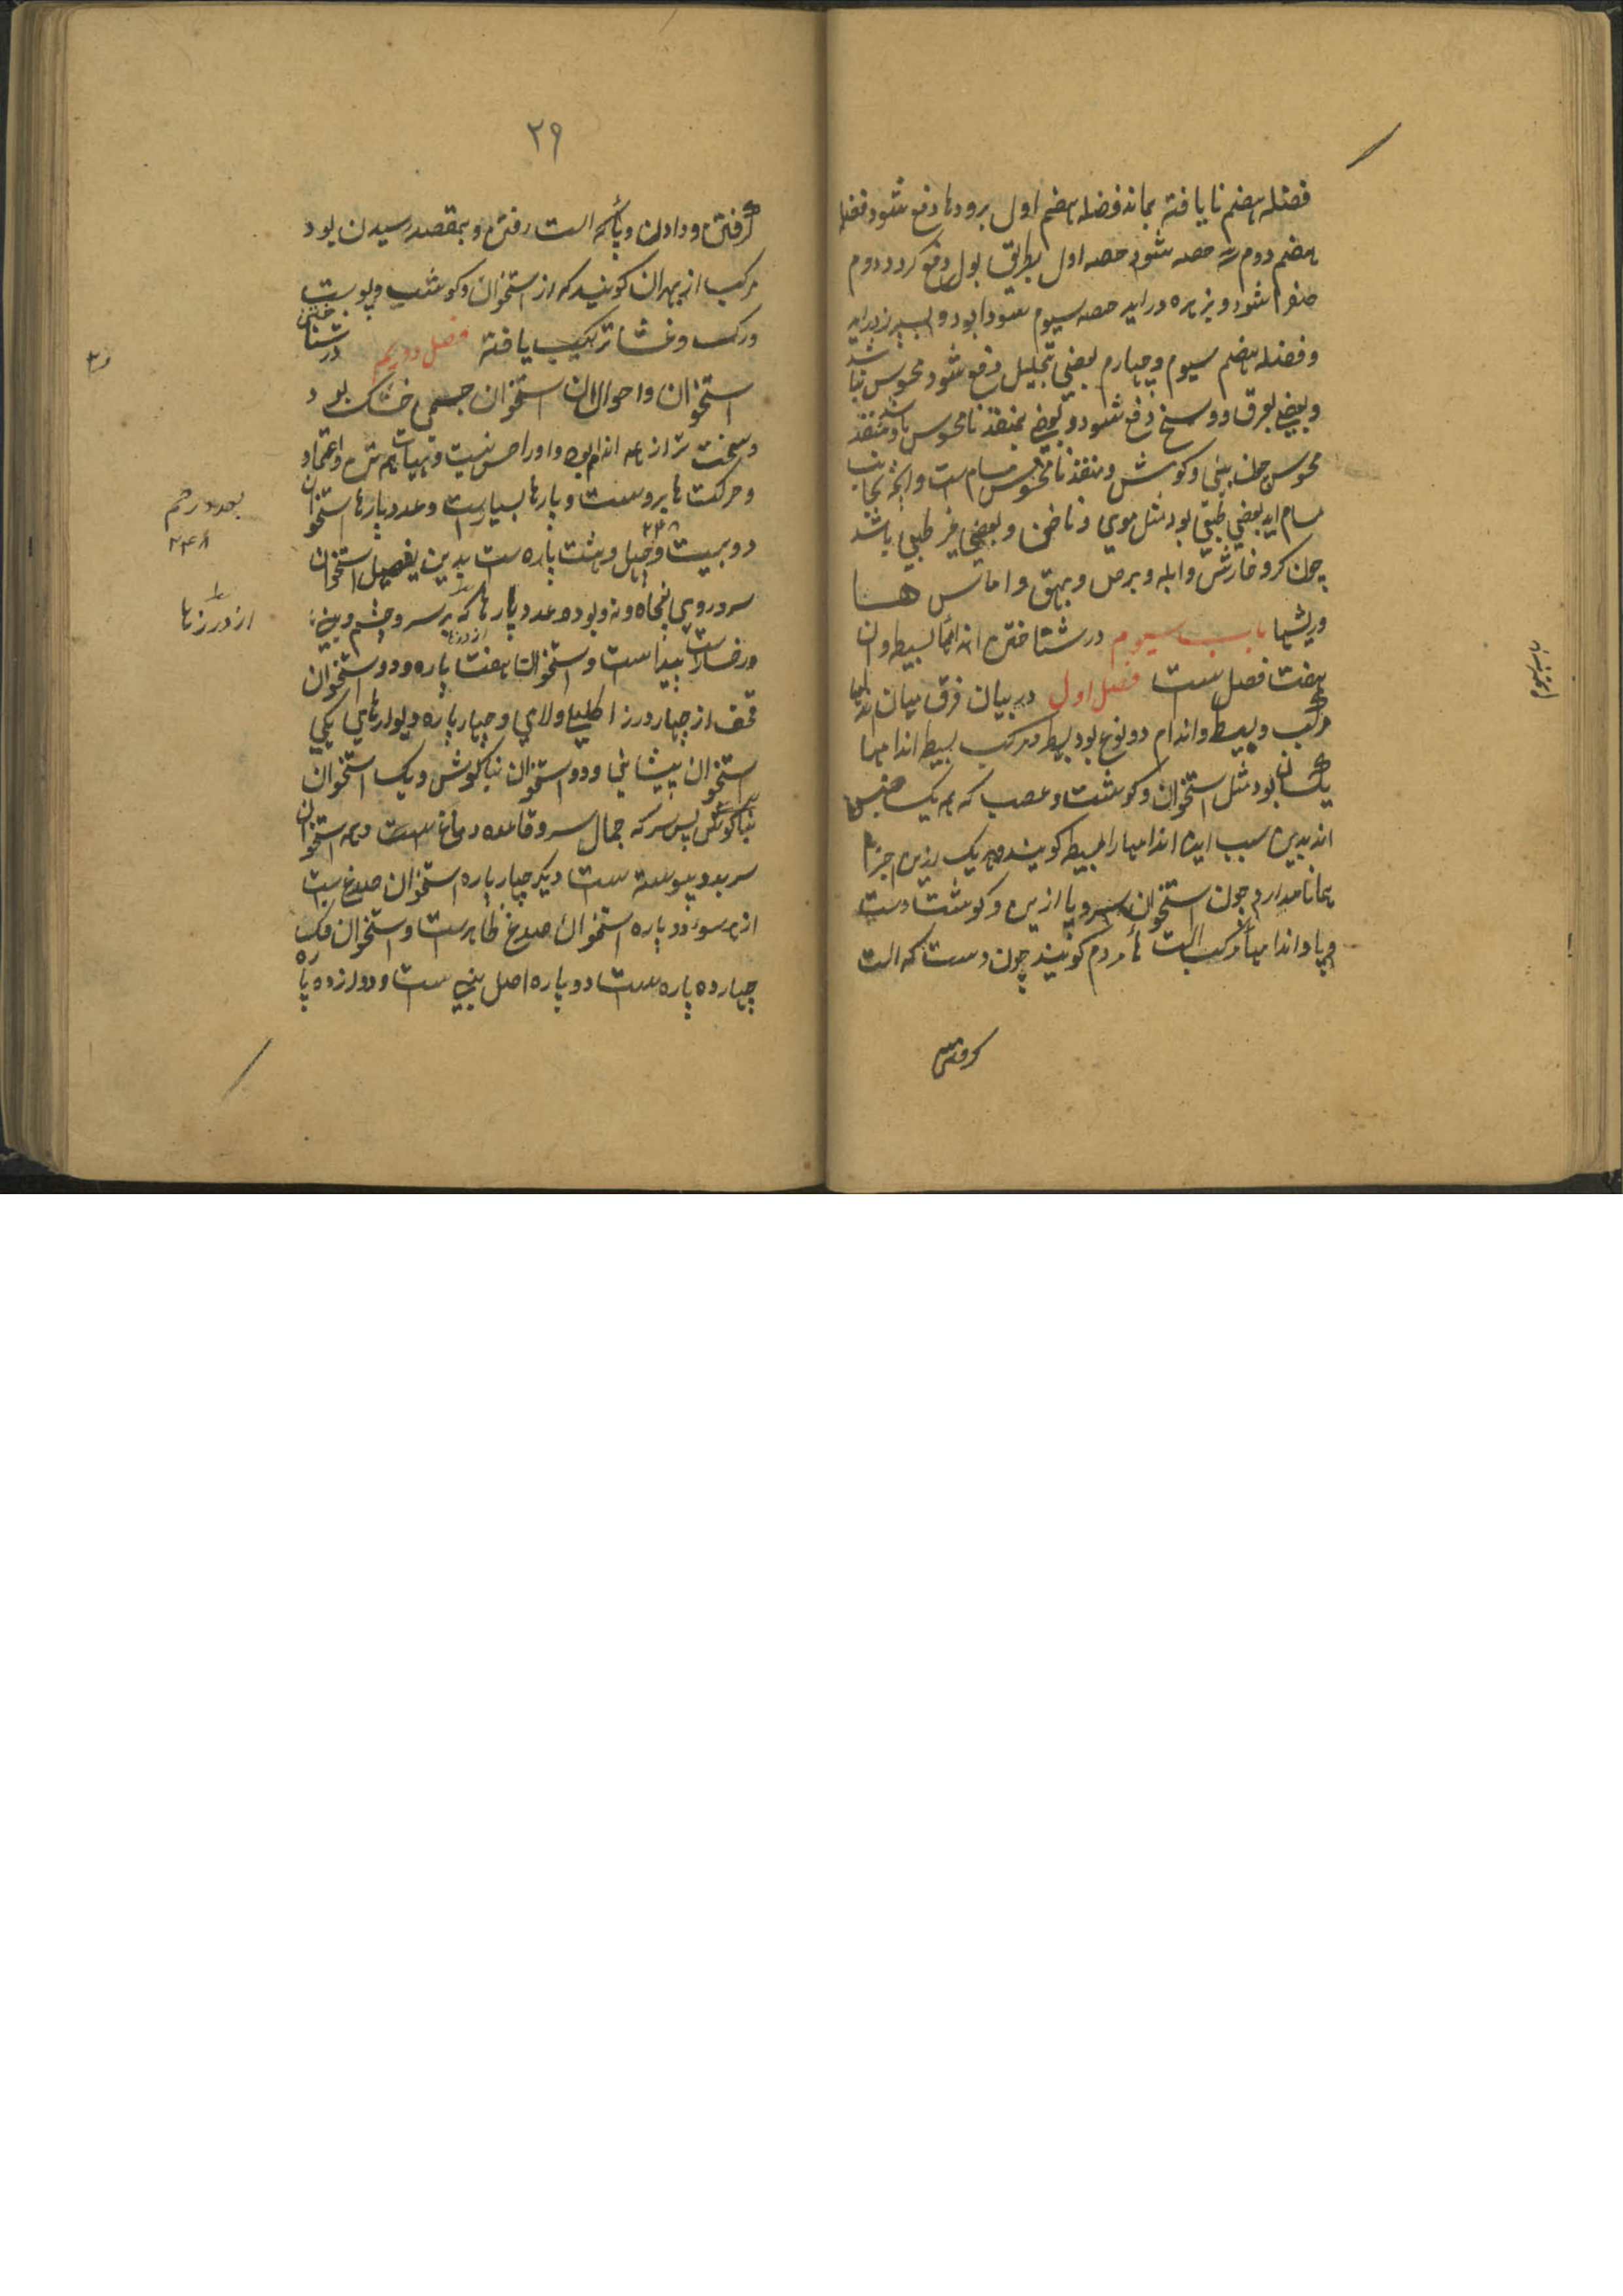 فضله هضم نایافته بماند فضله هضم اول برودها دفع شود فضله
هضم دوم سه حصه شود حصه اول بطریق بول دفع کردد دوم
صفرا شود و بزهره دراید حصه سیوم سودا بود و بسپرز دراید
و فضله هضم سیوم و چهارم بعضی بتحلیل دفع شود محسوس نباشد
و بعضی بعرق و وسخ دفع شود و بعضی بمنفذ نامحسوس باشد و منفذ
محسوس چون بینی و کوش و منفذ نامحسوس مسام ست و انچه بجانب
مسام اید بعضی طبیعی بود مثل موی و ناخن و بعضی غیر طبیعی باشد
چون کر و خارش و ابله و برص و بهق و اماس ها
و ریشها باب سیوم در شناختن اندامها بسیط و ان
هفت فصل ست فصل اول در بیان فرق میان اندامها
مرکب و بسیط و اندام دو نوع بود بسیط و مرکب بسیط اندامها
یکسان بود مثل استخوان و کوشت و عصب که همه یک جنس
اند بدین سبب این اندامها را بسیط کویند و هر یک ازین اجزا
همانا مدارد چون استخوان سر و پا ازین و کوشت دست
و پا و اندامها مرکب الت هاء مردم کویند چون دست که الت
کرفتن
باب سیوم
۲۹
کرفتن و دادن و پای که الت رفتن و بمقصد رسیدن بود
مرکب از بهر ان کویند که از استخوان و کوشت و پوست
و رک و غشا ترکیب یافته فصل دویم در شناختن
استخوان و احوال ان استخوان جسمی خشک بود
و سخت تر از همه اندام بود و او را حس نیست و ثبات همه تن و اعتماد
و حرکت ها بروست و پارها بسیارست و عدد پارها استخوان
دو بیست و چهل و هشت پاره ست بدین تفصیل استخوان
۲۴۸
سر و روی پنجاه و نه بود و عدد پارها که بر سر و چشم و بینی
و رخسارست پیدا ست و استخوان هفت پاره و دو استخوان
از درزها
قحف از چهار درز اکلیلی و لامی و چهار پاره دیوارهای یکی
استخوان پیشانی و دو استخوان بناکوش و یک استخوان
بناکوش پس سر که جمال سر و قاعده دماغ ست و همه استخوان
سر بدو پیوسته ست دیکر چهار پاره استخوان صدغ ست
از هر سوء دو پاره استخوان صدغ ظاهرست و استخوان فک
چهارده پاره ست دو پاره اصل بینی ست و دوازده پاره
بعدد رحم
۲۴۸
از درزها